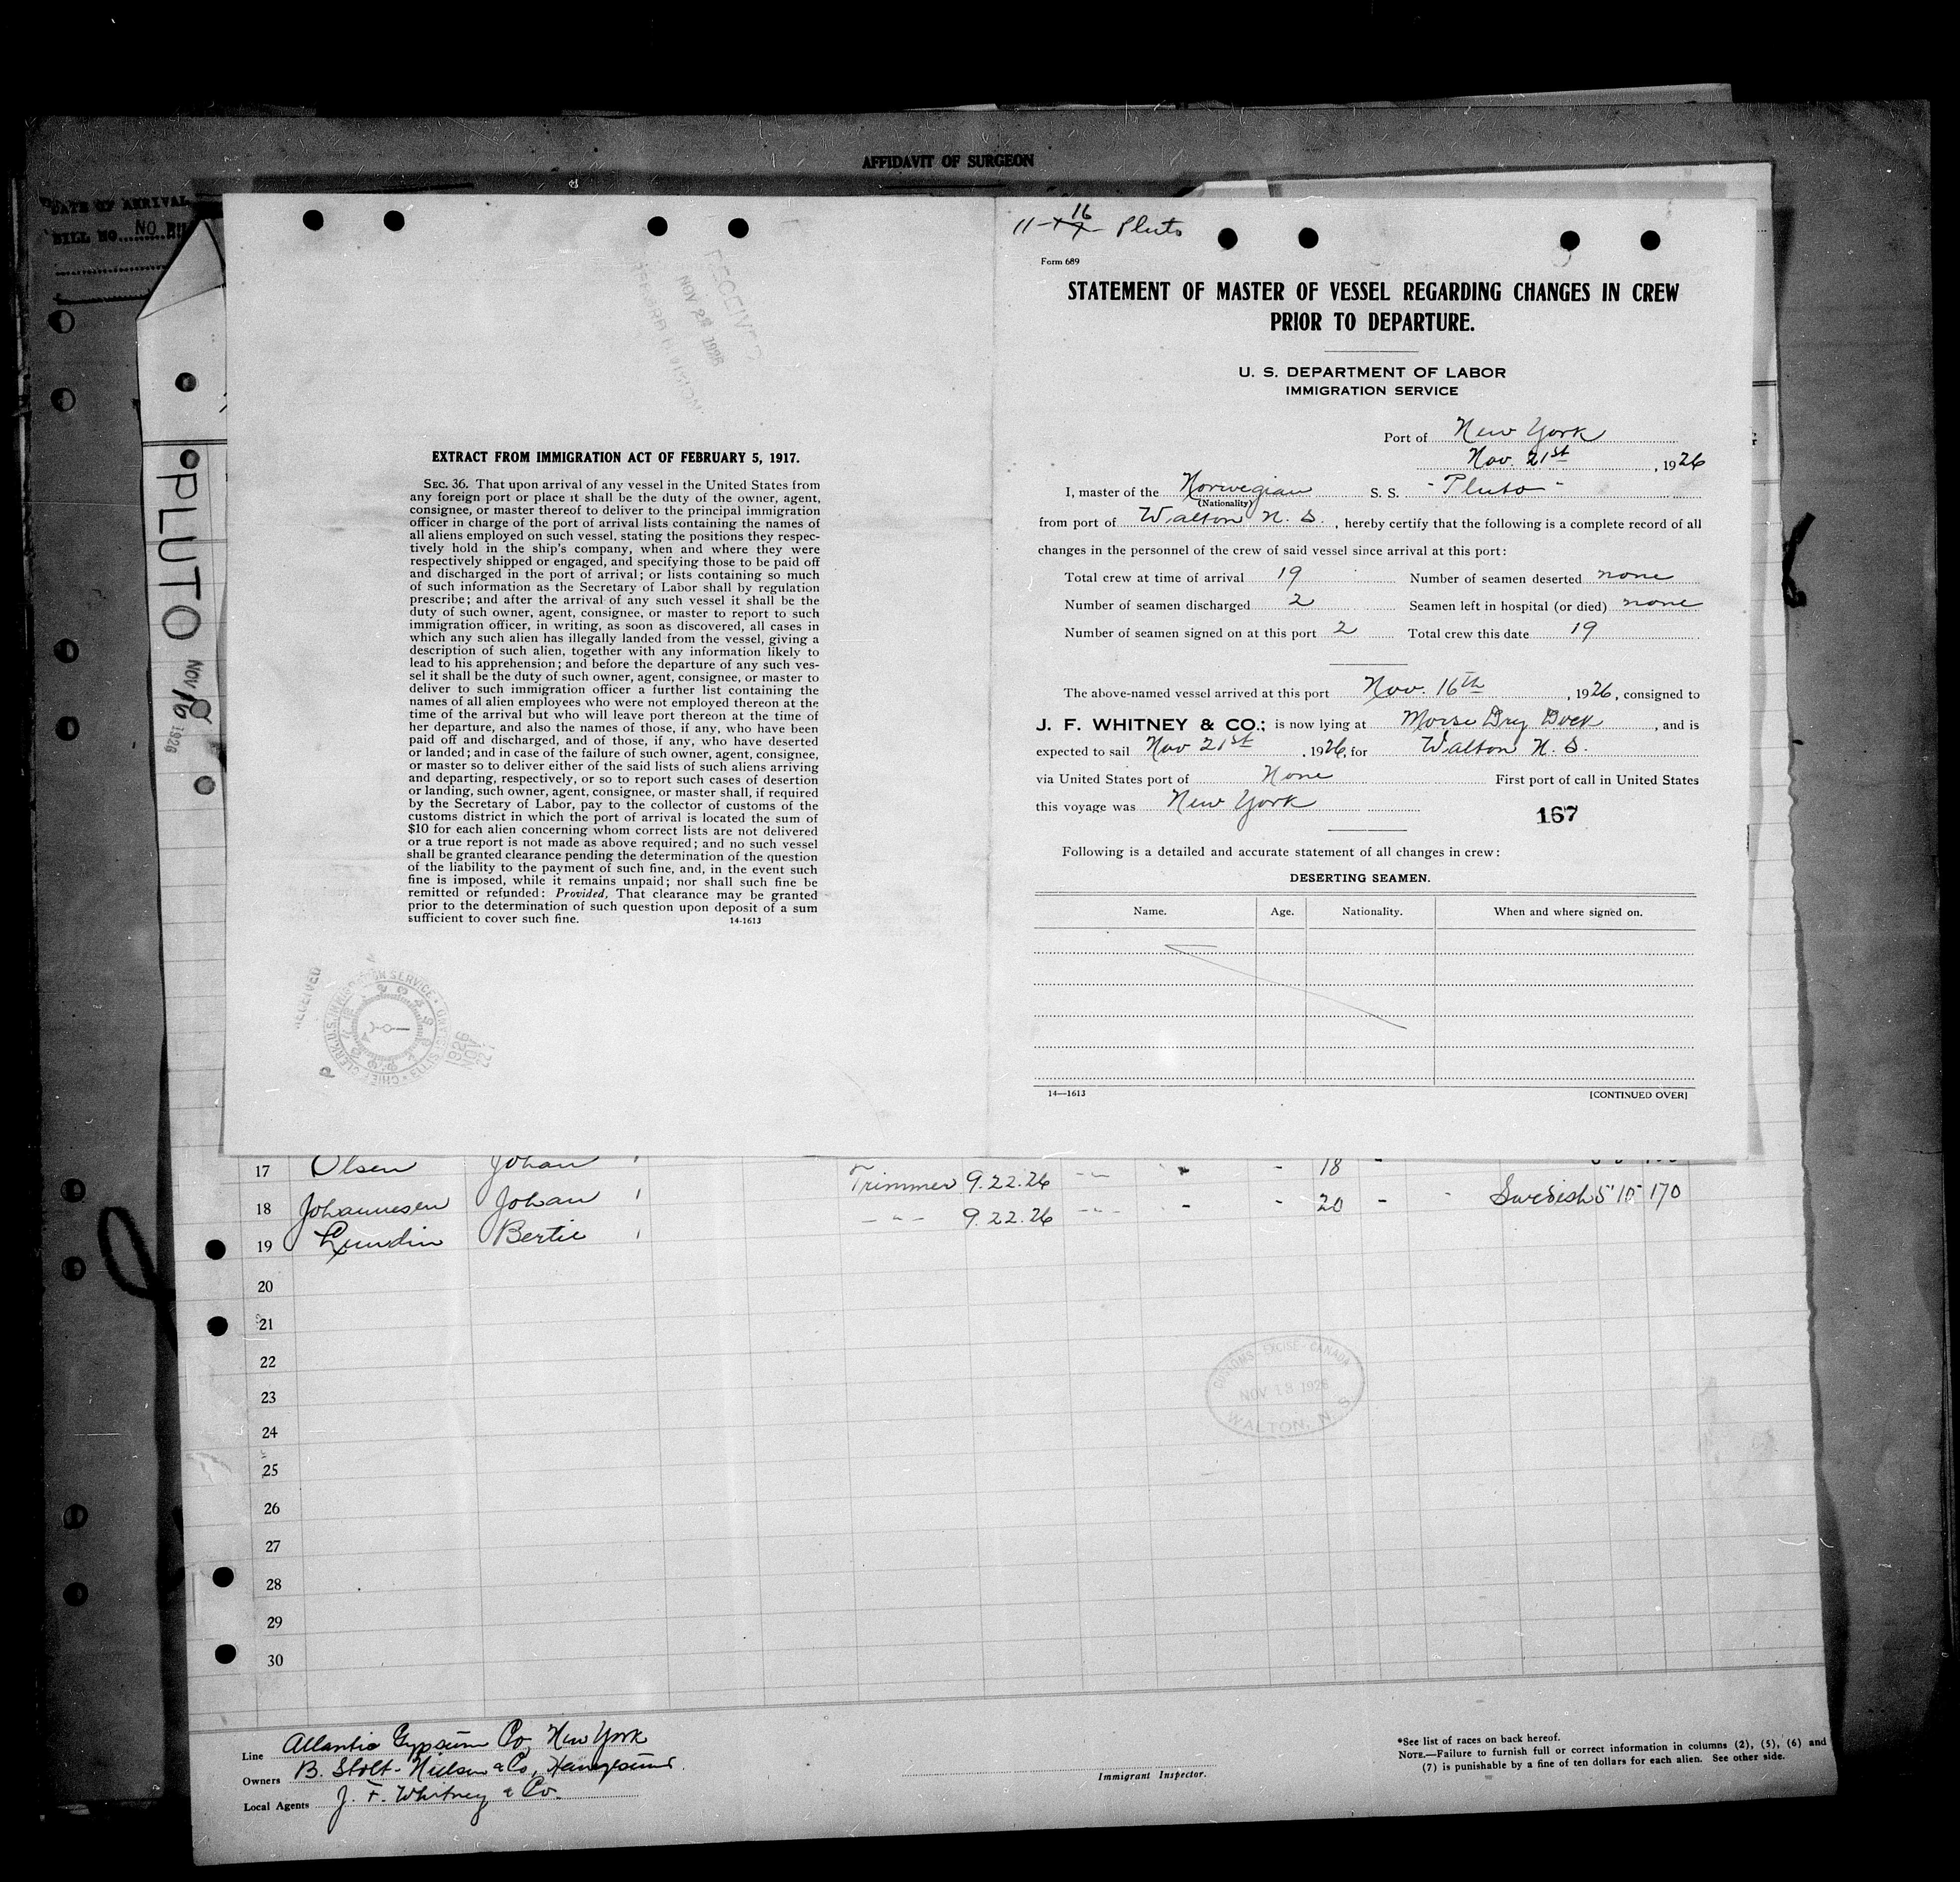 AFFIDAVIT OF SURGEON
DATE OF ARRIVAL
BILL NO. NO
PLUTO NOV 16 1926
RECEIVED
NOV 24 1926
EXTRACT FROM IMMIGRATION ACT OF FEBRUARY 5, 1917.
SEC. 36. That upon arrival of any vessel in the United States from
any foreign port or place it shall be the duty of the owner, agent,
consignee, or master thereof to deliver to the principal immigration
officer in charge of the port of arrival lists containing the names of
all aliens employed on such vessel, stating the positions they respec-
tively hold in the ship's company, when and where they were
respectively shipped or engaged, and specifying those to be paid off
and discharged in the port of arrival; or lists containing so much
of such information as the Secretary of Labor shall by regulation
prescribe; and after the arrival of any such vessel it shall be the
duty of such owner, agent, consignee, or master to report to such
immigration officer, in writing, as soon as discovered, all cases in
which any such alien has illegally landed from the vessel, giving a
description of such alien, together with any information likely to
lead to his apprehension; and before the departure of any such ves-
sel it shall be the duty of such owner, agent, consignee, or master to
deliver to such immigration officer a further list containing the
names of all alien employees who were not employed thereon at the
time of the arrival but who will leave port thereon at the time of
her departure, and also the names of those, if any, who have been
paid off and discharged, and of those, if any, who have deserted
or landed; and in case of the failure of such owner, agent, consignee,
or master so to deliver either of the said lists of such aliens arriving
and departing, respectively, or so to report such cases of desertion
or landing, such owner, agent, consignee, or master shall, if required
by the Secretary of Labor, pay to the collector of customs of the
customs district in which the port of arrival is located the sum of
$10 for each alien concerning whom correct lists are not delivered
or a true report is not made as above required; and no such vessel
shall be granted clearance pending the determination of the question
of the liability to the payment of such fine, and, in the event such
fine is imposed, while it remains unpaid; nor shall such fine be
remitted or refunded: Provided, That clearance may be granted
prior to the determination of such question upon deposit of a sum
sufficient to cover such fine. 14-1613
RECEIVED
CHIEF CLERK, U.S. IMMIGRATION SERVICE · ELLIS ISLAND
1926 NOV 22
11-16 Pluto
Form 689
STATEMENT OF MASTER OF VESSEL REGARDING CHANGES IN CREW
PRIOR TO DEPARTURE.
U. S. DEPARTMENT OF LABOR
IMMIGRATION SERVICE
Port of New York
Nov. 21st, 1926
I, master of the Norwegian S. S. "Pluto"
(Nationality)
from port of Walton N. S., hereby certify that the following is a complete record of all
changes in the personnel of the crew of said vessel since arrival at this port:
Total crew at time of arrival 19 Number of seamen deserted none
Number of seamen discharged 2 Seamen left in hospital (or died) none
Number of seamen signed on at this port 2 Total crew this date 19
The above-named vessel arrived at this port Nov. 16th, 1926, consigned to
J. F. WHITNEY & CO.; is now lying at Morse Dry Dock, and is
expected to sail Nov 21st, 1926, for Walton N. S.
via United States port of None First port of call in United States
this voyage was New York
167
Following is a detailed and accurate statement of all changes in crew:
DESERTING SEAMEN.
Name. Age. Nationality. When and where signed on.
14—1613 [CONTINUED OVER]
17 Olsen Johan 18
18 Johannesen Johan Trimmer 9.22.26 - 20 - Swedish 5'10" 170
19 Lundin Bertie 9.22.26
20
21
22
23
24
25
26
27
28
29
30
CUSTOMS-EXCISE-CANADA
NOV 13 1926
WALTON, N. S.
Line Atlantic Gypsum Co, New York
Owners B. Stolt-Nielsen & Co, Haugesund.
Local Agents J. F. Whitney & Co.
Immigrant Inspector.
*See list of races on back hereof.
NOTE.—Failure to furnish full or correct information in columns (2), (5), (6) and
(7) is punishable by a fine of ten dollars for each alien. See other side.